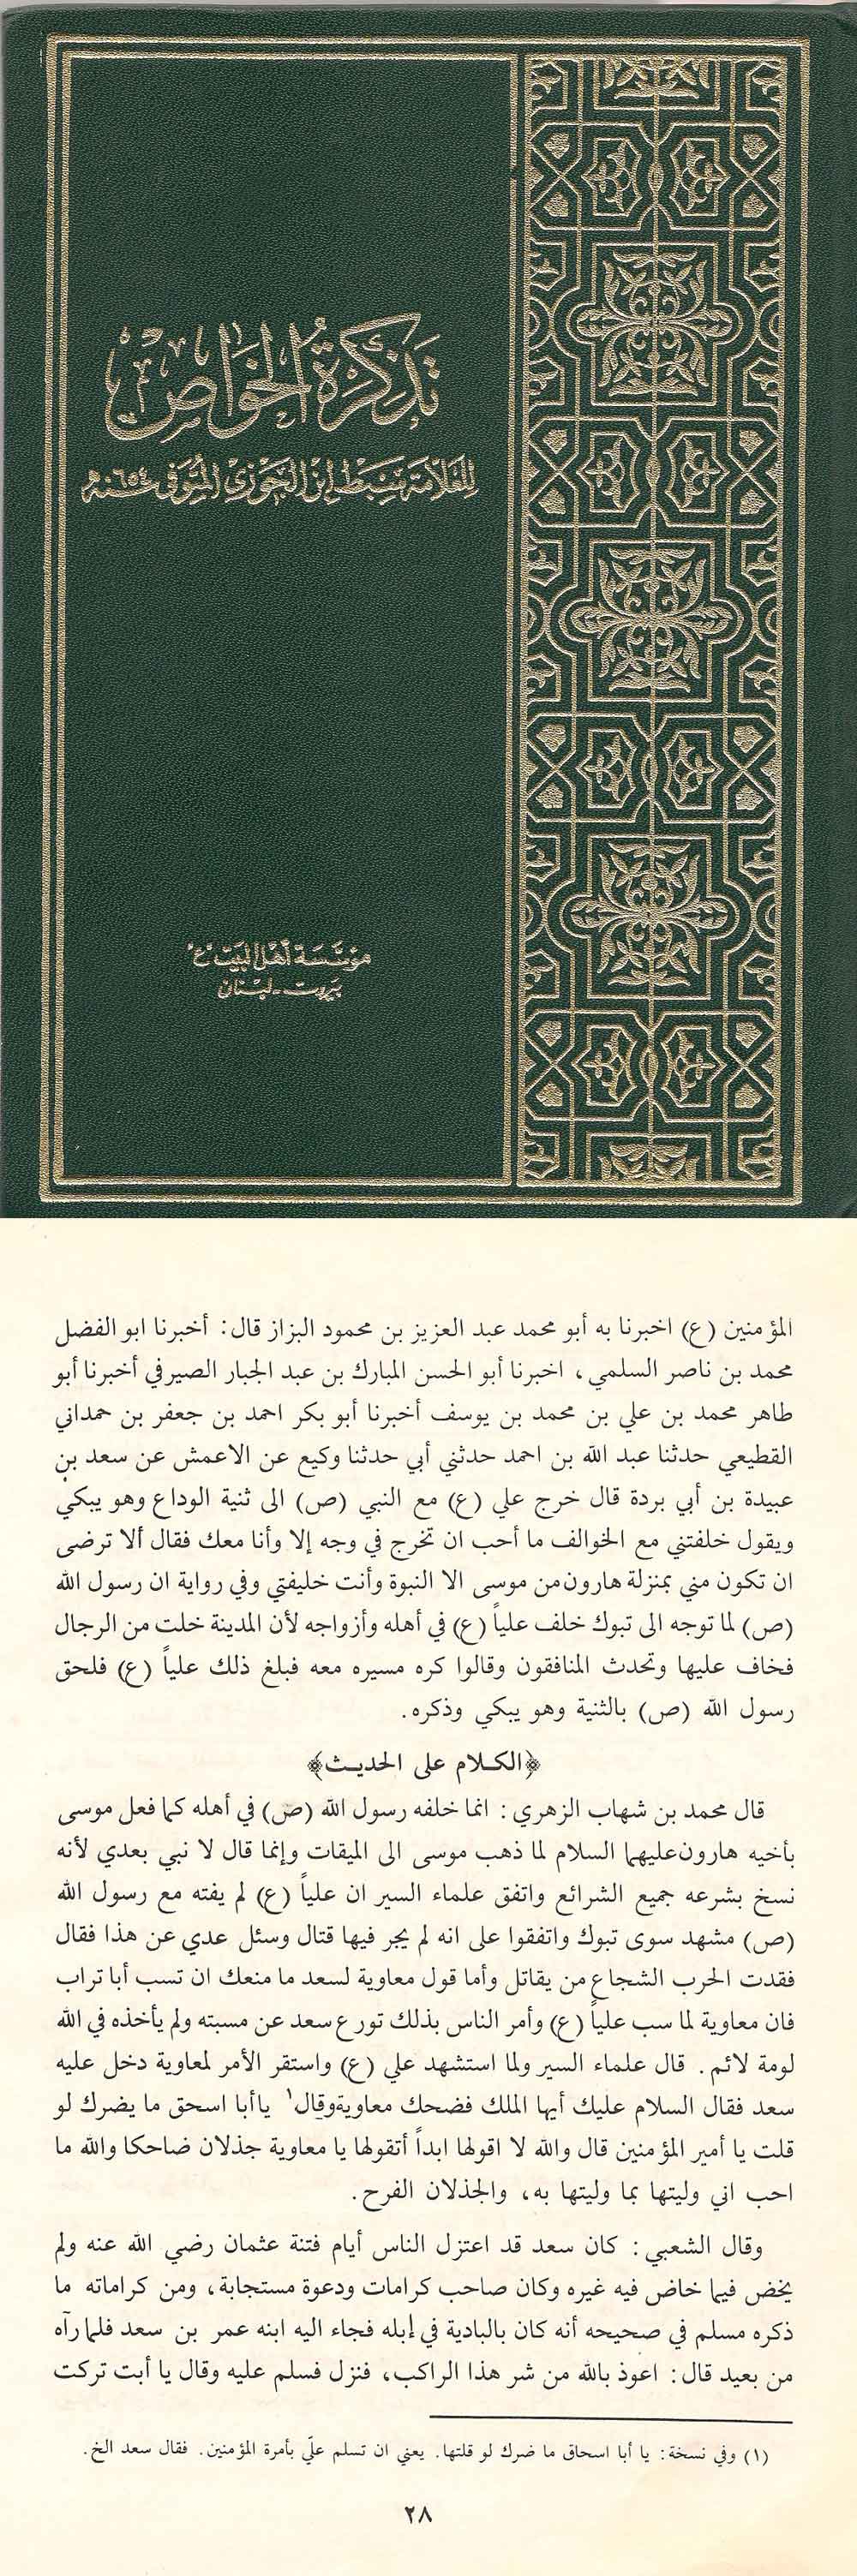 تذكرة الخواص
للعلامة سبط ابن الجوزي المتوفى سنة ٦٥٤ هـ
مؤسسة أهل البيت "ع"
بيروت - لبنان
المؤمنين (ع) اخبرنا به أبو محمد عبد العزيز بن محمود البزاز قال: أخبرنا ابو الفضل
محمد بن ناصر السلمي، اخبرنا أبو الحسن المبارك بن عبد الجبار الصيرفي أخبرنا أبو
طاهر محمد بن علي بن محمد بن يوسف أخبرنا أبو بكر احمد بن جعفر بن حمداني
القطيعي حدثنا عبد الله بن احمد حدثني أبي حدثنا وكيع عن الاعمش عن سعد بن
عبيدة بن أبي بردة قال خرج علي (ع) مع النبي (ص) الى ثنية الوداع وهو يبكي
ويقول خلفتني مع الخوالف ما أحب ان تخرج في وجه إلا وأنا معك فقال ألا ترضى
ان تكون مني بمنزلة هارون من موسى الا النبوة وأنت خليفتي وفي رواية ان رسول الله
(ص) لما توجه الى تبوك خلف علياً (ع) في أهله وأزواجه لأن المدينة خلت من الرجال
فخاف عليها وتحدث المنافقون وقالوا كره مسيره معه فبلغ ذلك علياً (ع) فلحق
رسول الله (ص) بالثنية وهو يبكي وذكره.
﴿الكلام على الحديث﴾
قال محمد بن شهاب الزهري: انما خلفه رسول الله (ص) في أهله كما فعل موسى
بأخيه هارون عليهما السلام لما ذهب موسى الى الميقات وإنما قال لا نبي بعدي لأنه
نسخ بشرعه جميع الشرائع واتفق علماء السير ان علياً (ع) لم يفته مع رسول الله
(ص) مشهد سوى تبوك واتفقوا على انه لم يجر فيها قتال وسئل عدي عن هذا فقال
فقدت الحرب الشجاع من يقاتل وأما قول معاوية لسعد ما منعك ان تسب أبا تراب
فان معاوية لما سب علياً (ع) وأمر الناس بذلك تورع سعد عن مسبته ولم يأخذه في الله
لومة لائم. قال علماء السير ولما استشهد علي (ع) واستقر الأمر لمعاوية دخل عليه
سعد فقال السلام عليك أيها الملك فضحك معاوية وقال١ يا أبا اسحق ما يضرك لو
قلت يا أمير المؤمنين قال والله لا اقولها ابداً أتقولها يا معاوية جذلان ضاحكا والله ما
احب اني وليتها بما وليتها به، والجذلان الفرح.
وقال الشعبي: كان سعد قد اعتزل الناس أيام فتنة عثمان رضي الله عنه ولم
يخض فيما خاض فيه غيره وكان صاحب كرامات ودعوة مستجابة، ومن كراماته ما
ذكره مسلم في صحيحه أنه كان بالبادية في إبله فجاء اليه ابنه عمر بن سعد فلما رآه
من بعيد قال: اعوذ بالله من شر هذا الراكب، فنزل فسلم عليه وقال يا أبت تركت
(١) وفي نسخة: يا أبا اسحاق ما ضرك لو قلتها. يعني ان تسلم علّي بأمرة المؤمنين. فقال سعد الخ.
٢٨